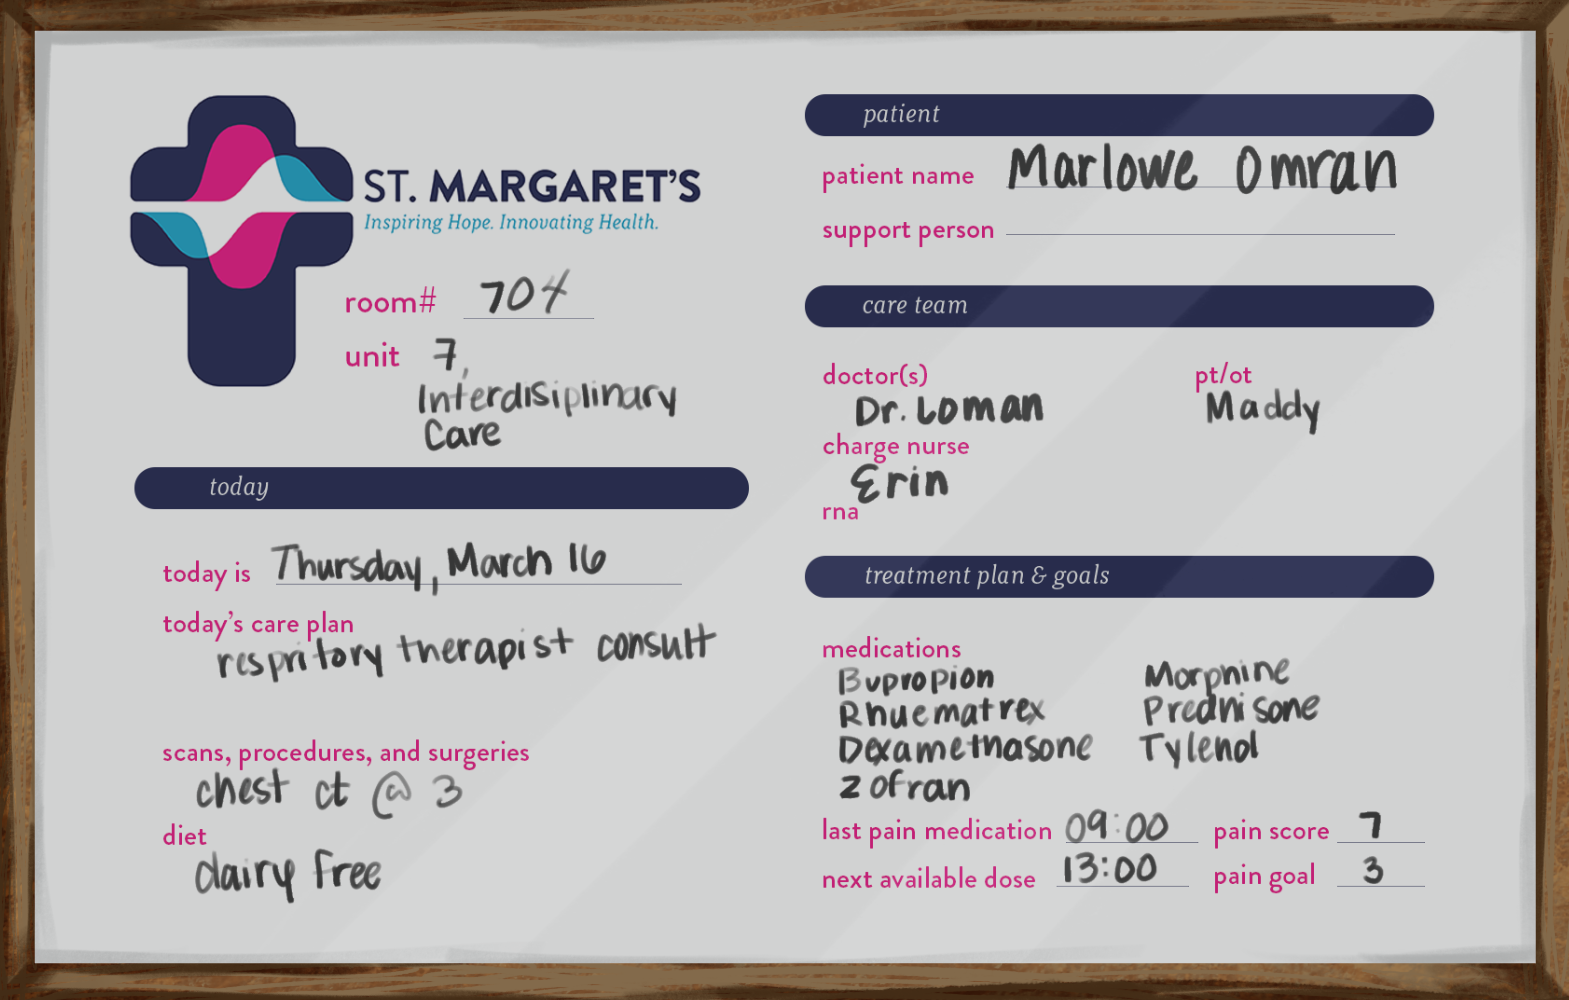 ST. MARGARET'S
Inspiring Hope. Innovating Health.
room# 704
unit 7,
Interdisiplinary
Care
today
today is Thursday, March 16
today's care plan
respritory therapist consult
scans, procedures, and surgeries
chest ct @ 3
diet
dairy free
patient
patient name Marlowe Omran
support person
care team
doctor(s) pt/ot
Dr. Loman Maddy
charge nurse
Erin
rna
treatment plan & goals
medications
Bupropion Morphine
Rhuematrex Prednisone
Dexamethasone Tylenol
Zofran
last pain medication 09:00 pain score 7
next available dose 13:00 pain goal 3